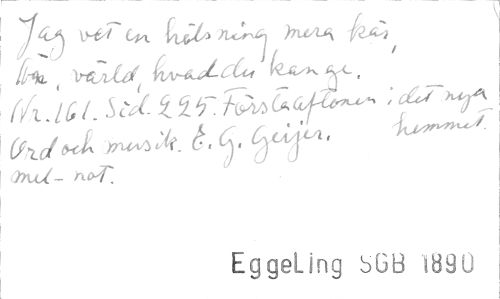 Jag vet en hälsning mera kär,
än, värld, hvad du kan ge.
Nr. 161. Sid. 225. Första aftonen i det nya
hemmet.
Ord och musik. E. G. Geijer.
mel-not.
EggeLing SGB 1890